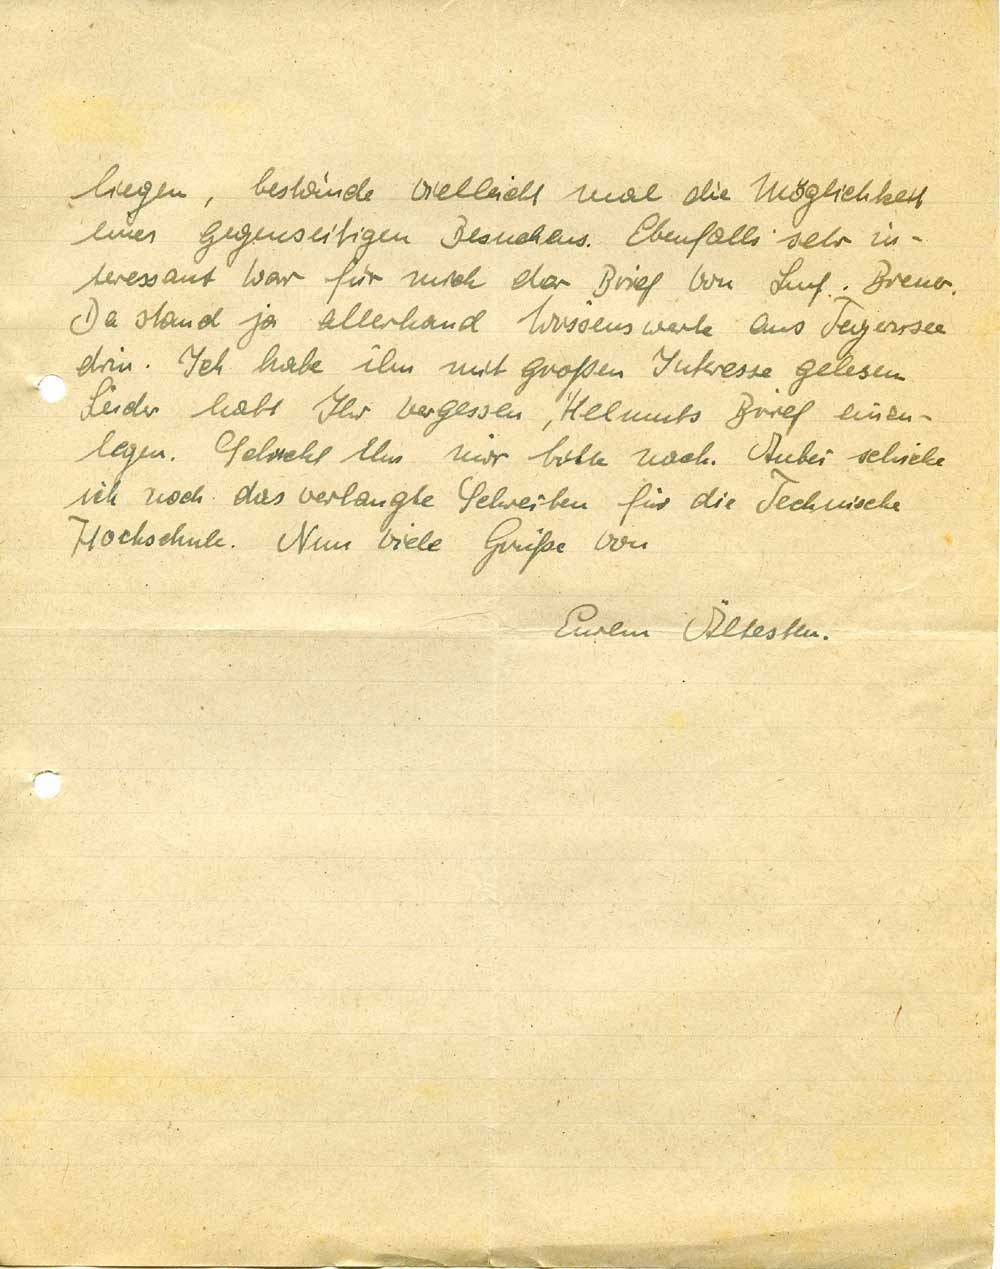 liegen, bestände vielleicht mal die Möglichkeit
eines gegenseitigen Besuches. Ebenfalls sehr in-
teressant war für mich der Brief von
Da stand ja allerhand Wissenswerte aus Tegernsee
drin. Ich habe ihn mit großen Interesse gelesen
Leider habt Ihr vergessen, Helmuts Brief einzu-
legen. Schickt ihn mir bitte nach. Anbei schicke
ich noch das verlangte Schreiben für die Technische
Hochschule. Nun viele Grüße von
Eurem Ältesten.